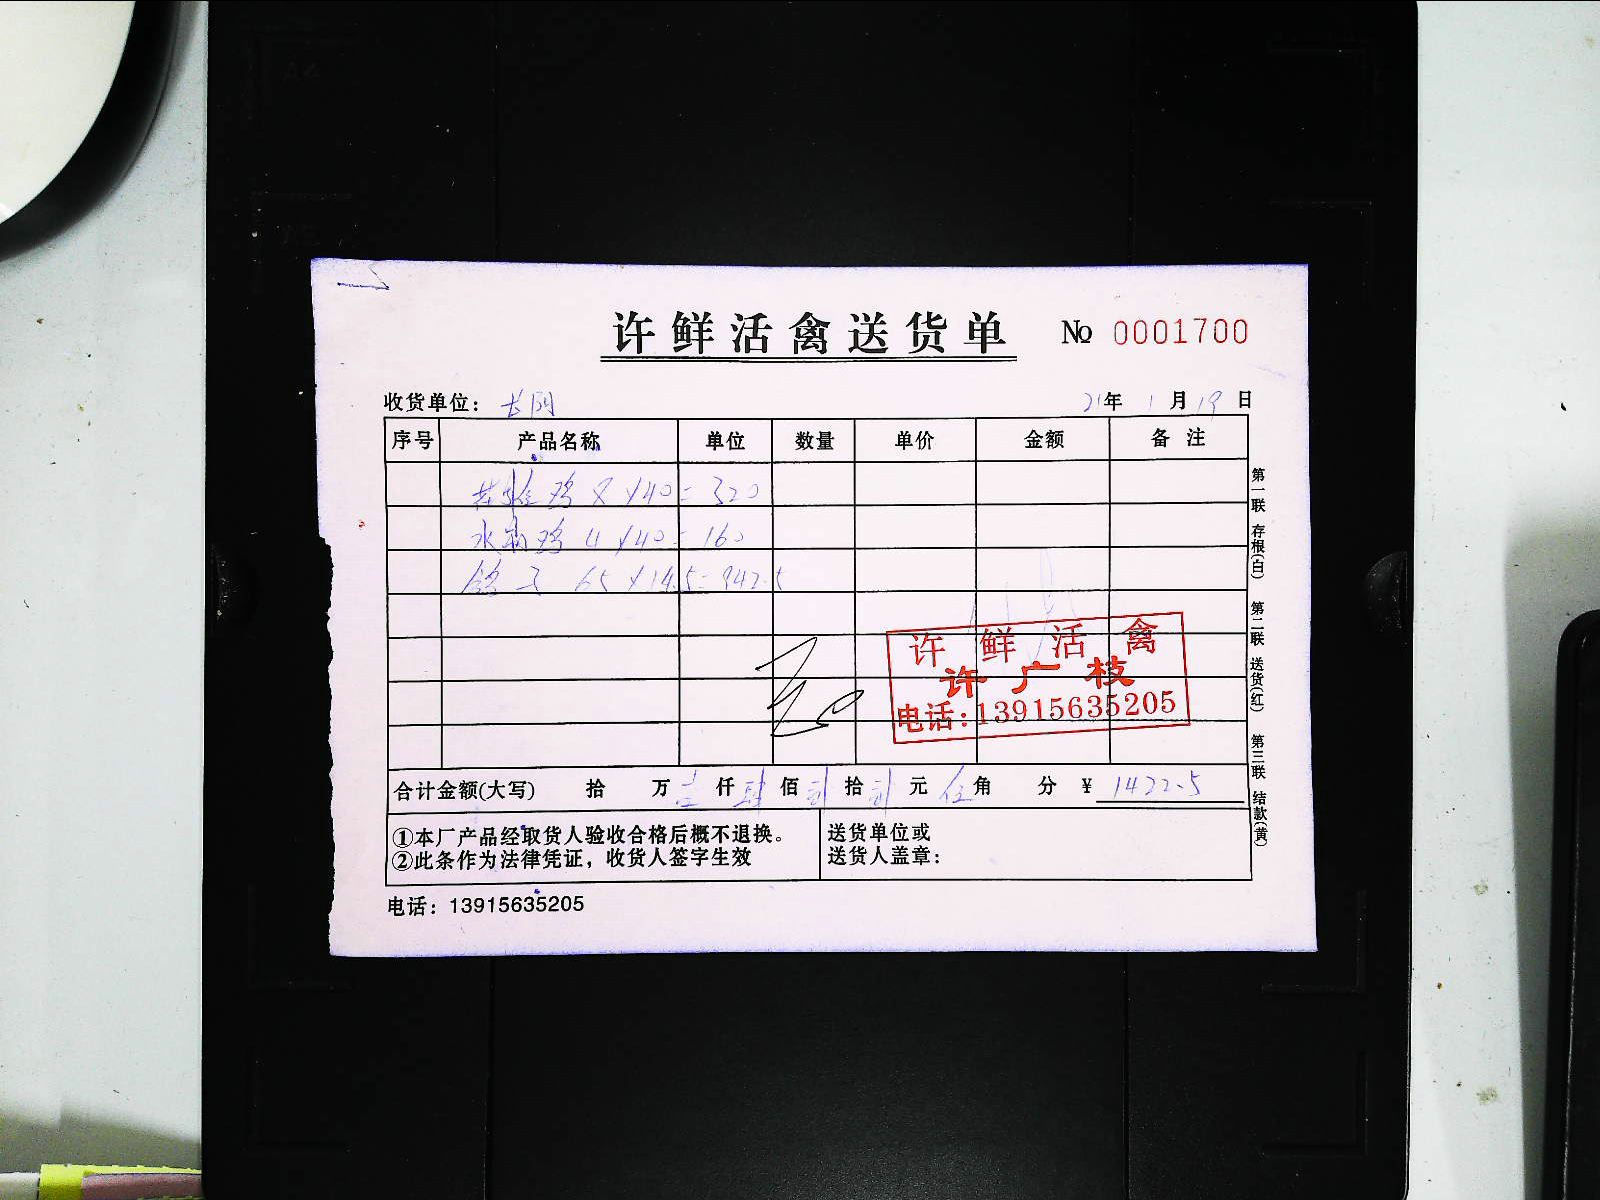 许鲜活禽送货单 № 0001700
收货单位： 21年 1月 19日
序号 产品名称 单位 数量 单价 金额 备注
鸡 8×40=320
水 鸡 4×40=160
65×14.5=942.5
许鲜活禽
许广枝
电话:13915635205
合计金额(大写) 拾 万 壹仟 肆佰 贰拾 贰元 伍角 分 ¥ 1422.5
①本厂产品经取货人验收合格后概不退换。
②此条作为法律凭证，收货人签字生效
送货单位或
送货人盖章：
电话：13915635205
第一联 存根(白) 第二联 送货(红) 第三联 结款(黄)